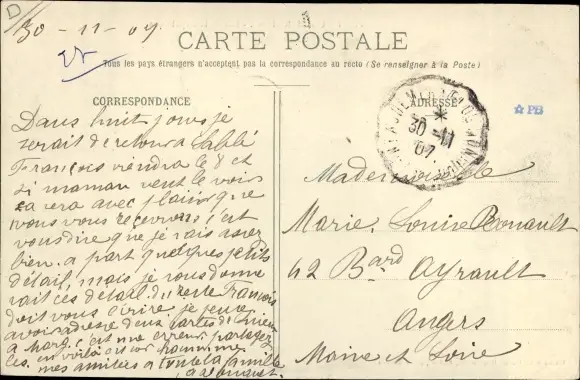 D
30-11-07
CARTE POSTALE
Tous les pays étrangers n'acceptent pas la correspondance au recto (Se renseigner à la Poste)
CORRESPONDANCE
ADRESSE
30 -11
07
PB
Dans huit jours je
serait de retour a Sablé
François viendra le 8 et
si maman veut le voir
sa sera avec plaisir que
nous vous recevrons c'est
vous dire que je vais assez
bien. a part quelques petits
détail, mais je vous donne
rait ces détail. du reste François
doit vous écrire je
avoir adresse deux cartes
a c'est une erreur partagez
les. en voilà
mes amitiées a toute la famille
Mademoiselle
Marie Louise Renault
42 Bard Ayrault
Angers
Maine et Loire